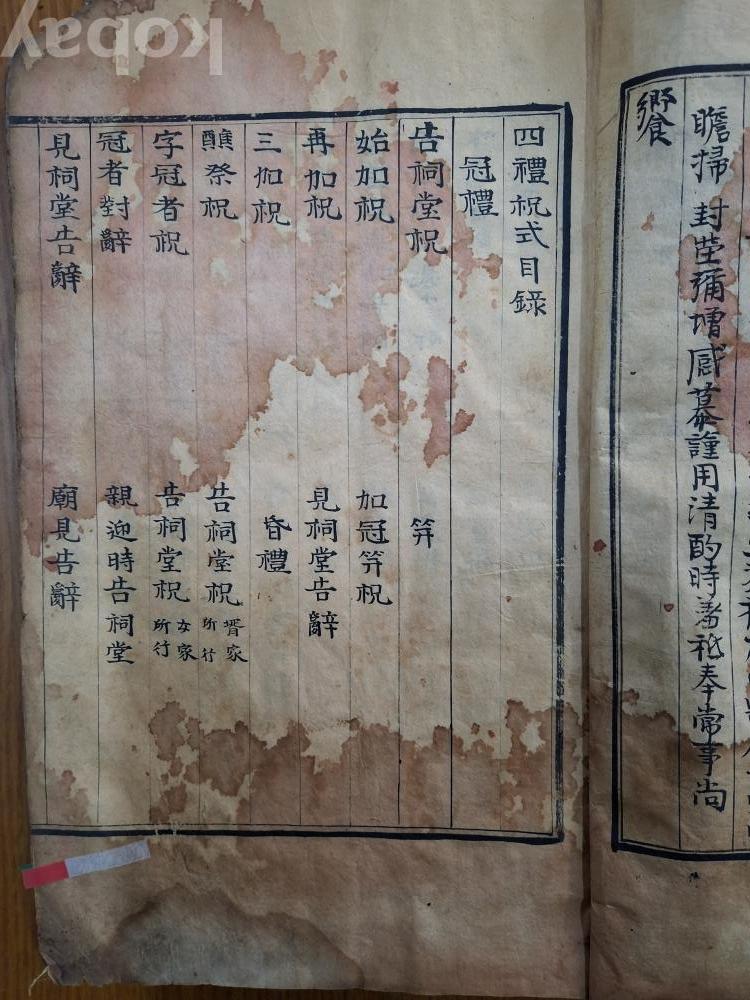 瞻掃封塋彌增感慕謹用清酌時羞祗奉常事尚
饗
四禮祝式目錄
冠禮
告祠堂祝
始加祝
再加祝
三加祝
醮祭祝
字冠者祝
冠者對辭
見祠堂告辭
笄
加冠笄祝
見祠堂告辭
昏禮
告祠堂祝 壻家所行
告祠堂祝 女家所行
親迎時告祠堂
廟見告辭
kobay